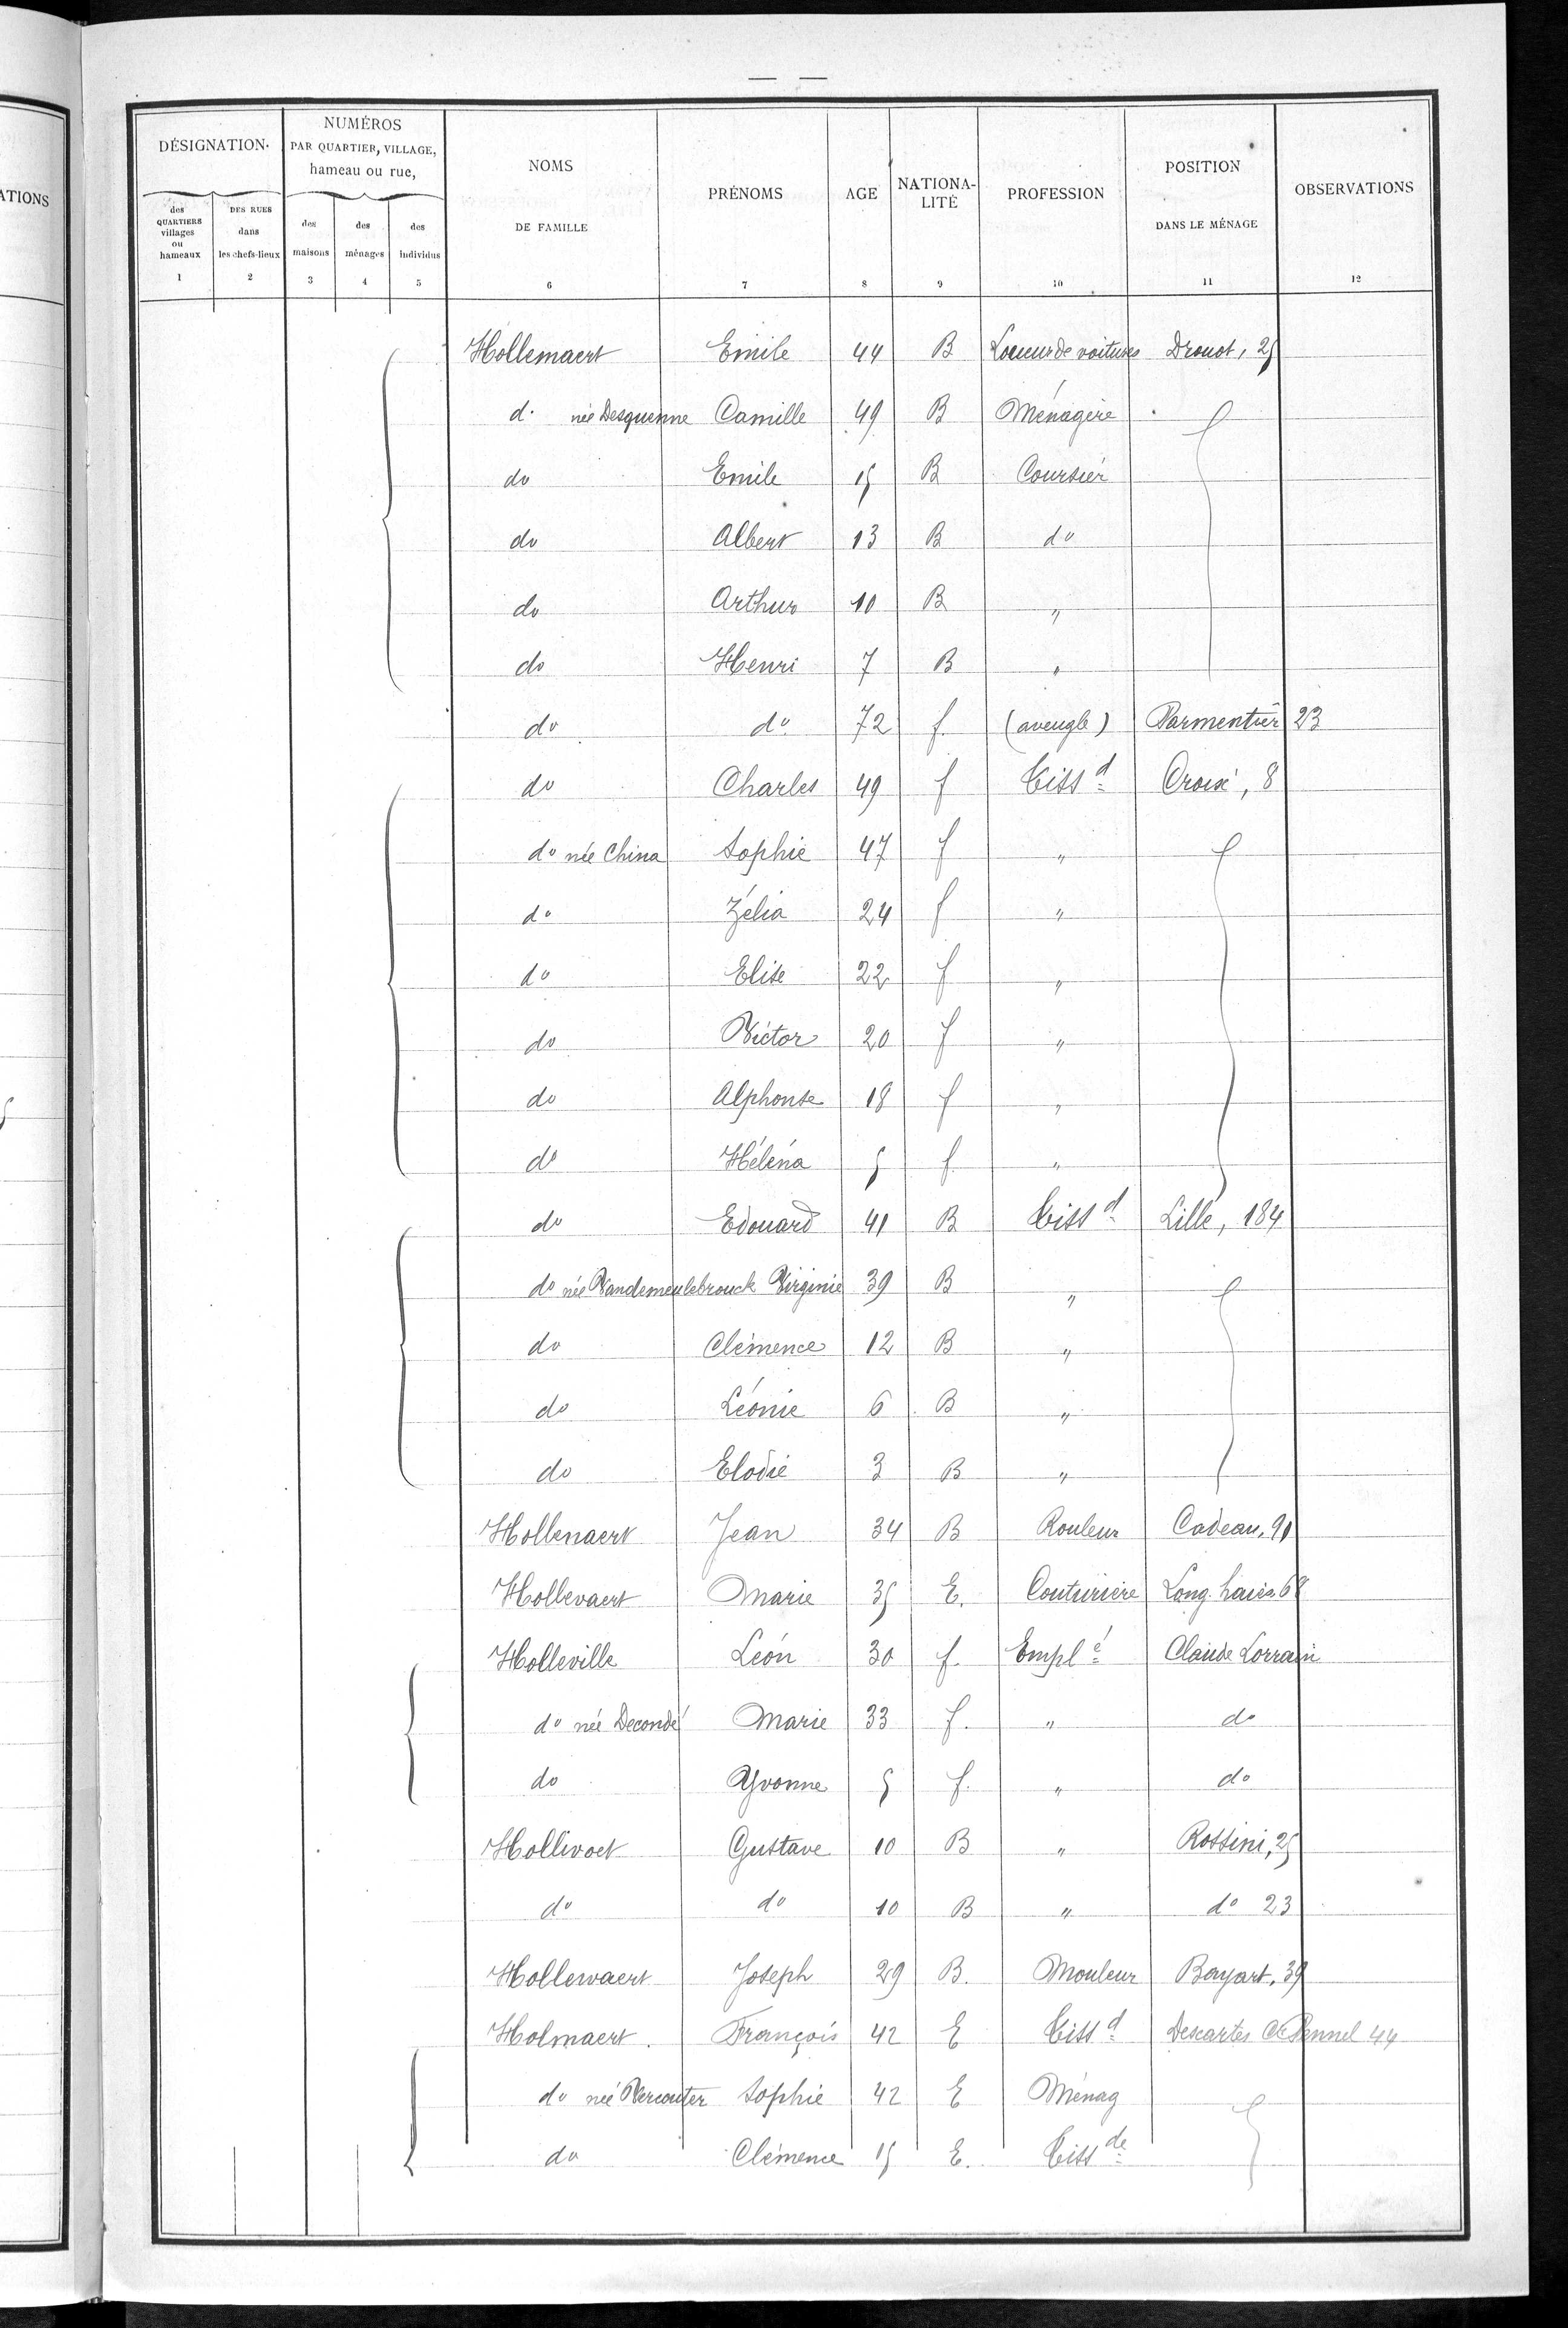 — —
ATIONS
DÉSIGNATION.
NUMÉROS PAR QUARTIER, VILLAGE, hameau ou rue,
NOMS DE FAMILLE
PRÉNOMS
AGE
NATIONA-LITÉ
PROFESSION
POSITION DANS LE MÉNAGE
OBSERVATIONS
des QUARTIERS villages ou hameaux
DES RUES dans les chefs-lieux
des maisons
des ménages
des individus
1 2 3 4 5 6 7 8 9 10 11 12
Hollemaert Emile 44 B Loueur de voitures Drouot, 25
do née Desquenne Camille 49 B Ménagère
do Emile 15 B Coursier
do Albert 13 B do
do Arthur 10 B "
do Henri 7 B "
do do 72 f. (aveugle) Parmentier 23
do Charles 49 f Tissd Croix, 8
do née China Sophie 47 f "
do Zélia 24 f "
do Elise 22 f "
do Victor 20 f "
do Alphonse 18 f "
do Héléna 5 f "
do Edouard 41 B Tissd Lille, 184
do née Vandemeulebrouck Virginie 39 B "
do Clémence 12 B "
do Léonie 6 B "
do Elodie 3 B "
Hollenaert Jean 34 B Rouleur Cadeau, 91
Hollevaert Marie 35 E. Couturière Long. haies 68
Holleville Léon 30 f. Emplé Claude Lorrain
do née Decondé Marie 33 f. " do
do Yvonne 5 f. " do
Hollivoet Gustave 10 B " Rossini, 25
do do 10 B " do 23
Hollewaert Joseph 29 B. Mouleur Bayart, 39
Holmaert. François 42 E Tissd Descartes Cr Pennel 44
do née Vercouter Sophie 42 E Ménag
do Clémence 15 E. Tissde